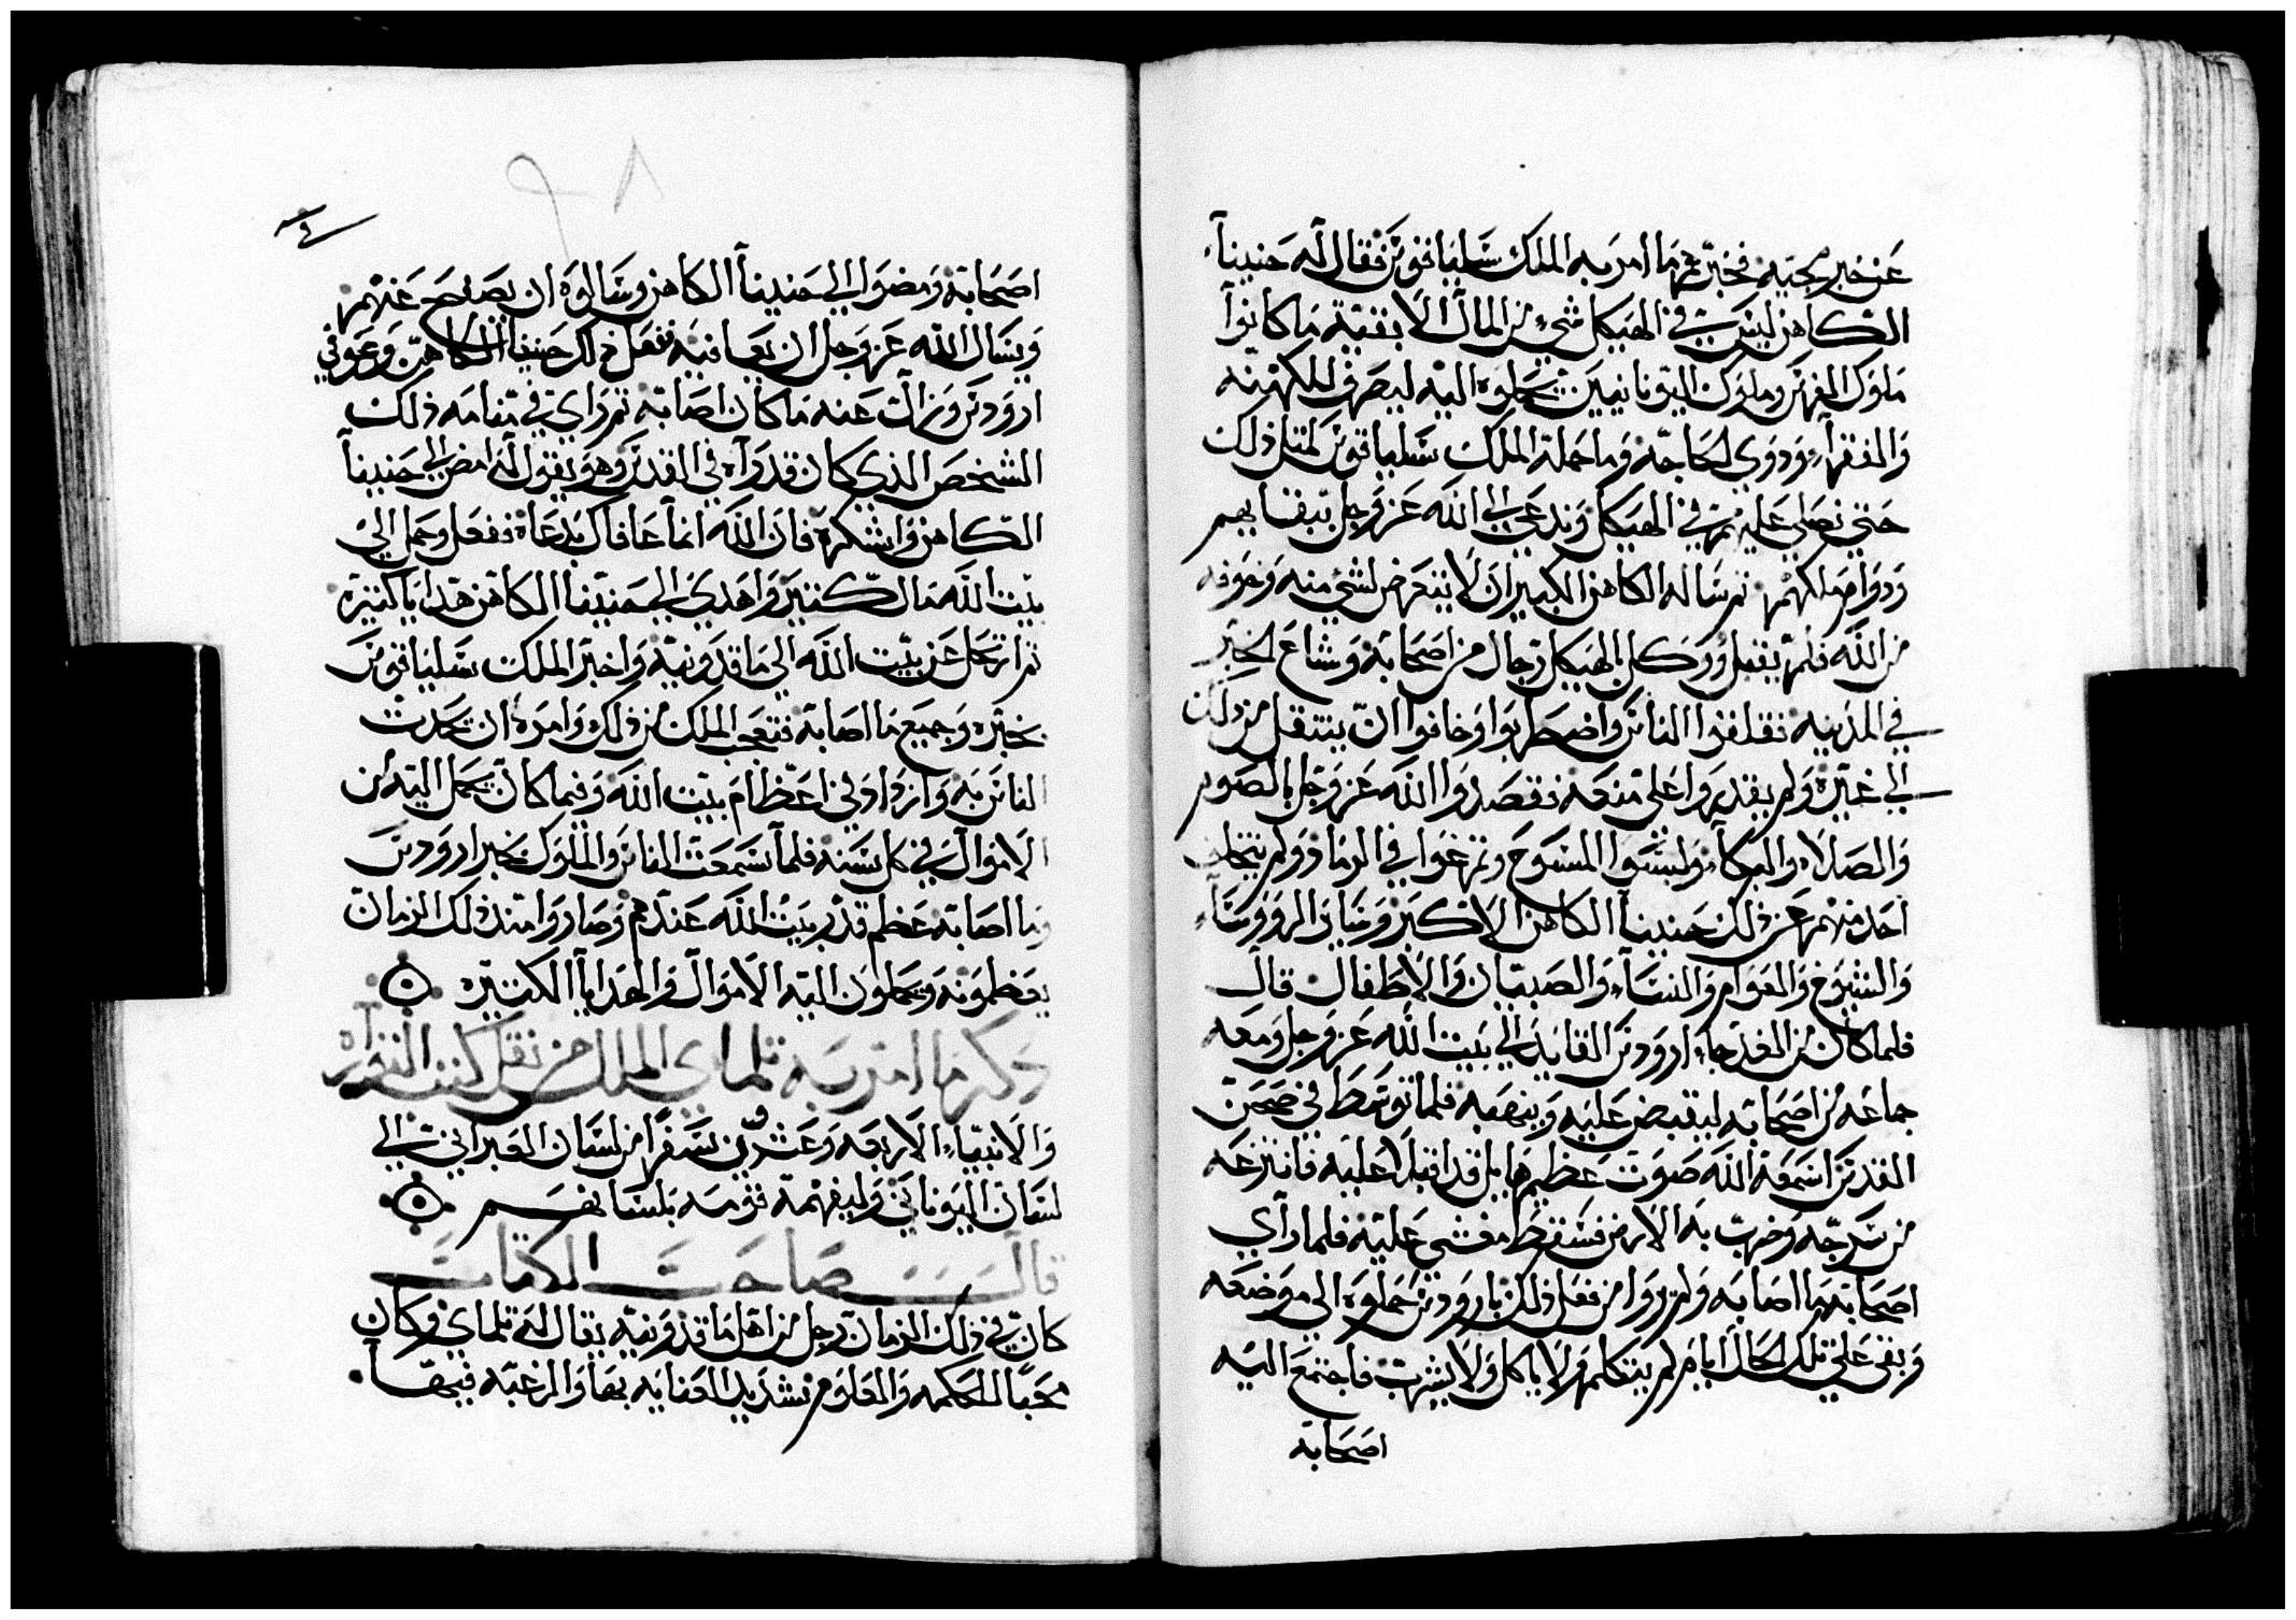 عن خبر مجيه فخبرهما امر به الملك سليافوس فقال له حنينا
الكاهن ليس في الهيكل شي من المال الا بقية ما كانوا
ملوك الفرس وملوك اليونانيين يحملوه اليه ليصرف للكهنه
والفقرآ وذوي الحاجه وما حمله الملك سليافوس لمثل ذلك
حتي نصلي عليهم في الهيكل وندعي الى الله عز وجل ببقايهم
ودوام ملكهم ثم ساله الكاهن الكبير ان لا يتعرض لشي منه وخوفه
من الله فلم يفعل ووكل بالهيكل رجال من اصحابه وشاع الخبر
في المدينه فقلقوا الناس واضطربوا وخافوا ان ينتقل من ذلك
الي غيره ولم يقدروا على منعه فقصدوا الله عز وجل بالصوم
والصلاه والبكآ ولبسوا المسوح وتمرغوا في الرماد ولم يتخلف
احد منهم عن ذلك حنينا الكاهن الاكبر وساير الرووسآء
والشيوخ والعوام والنسآء والصبيان والاطفال قال
فلما كان من الغد جاء اردوس القايد الي بيت الله عز وجل ومعه
جماعه من اصحابه ليقبض عليه وينهبه فلما توسط في صحن
القدس اسمعه الله صوت عظيم هايل قد اقبل عليه فانزعه
من سرجه وضرب به الارض فسقط مغشي عليه فلما راي
اصحابه ما اصابه ولم يروا من فعل ذلك باروودس حملوه الى موضعه
وبقى على تلك الحال ايام لم يتكلم ولا ياكل ولا يشرب فاجتمع اليه
اصحابه
اصحابه ومضوا الي حنينا الكاهن وسالوه ان يصفح عنهم
ويسال الله عز وجل ان يعافيه ففعل ذلك حنينا الكاهن وعوفي
اروودس وزالت عنه ما كان اصابه ثم راي في منامه ذلك
الشخص الذي كان قد رآه في القدس وهو يقول له امض الي حنينا
الكاهن واشكره فان الله انما عافاك بدعاه ففعل وحمل الي
بيت الله مال كثير واهدي الى حنينا الكاهن هدايا كثيره
ثم ارتحل عن بيت الله الى ماقدونيه واخبر الملك سليافوس
بخبره وجميع ما اصابه فتعجب الملك من ذلك وامره ان يحدث
الناس به وازداد في اعظام بيت الله وفيما كان يحمل اليه من
الاموال في كل سنه فلما سمعت الناس والملوك بخبر اروودس
وما اصابه عظم قدر بيت الله عندهم وصاروا منذ ذلك الزمان
يعظمونه ويحملون اليه الاموال والهدايا الكثيره
ذكر ما امر به تلماي الملك من نقل كتب التوراه
والانبياء الاربعه وعشرين سفرا من لسان العبراني الي
لسان اليوناني وليفهمه قومه بلسانهم
قال صاحب الكتاب
كان في ذلك الزمان رجل من اهل ماقدونيه يقال له تلماي وكان
محبا للحكمه والعلوم شديد العنايه بها والرغبه فيها